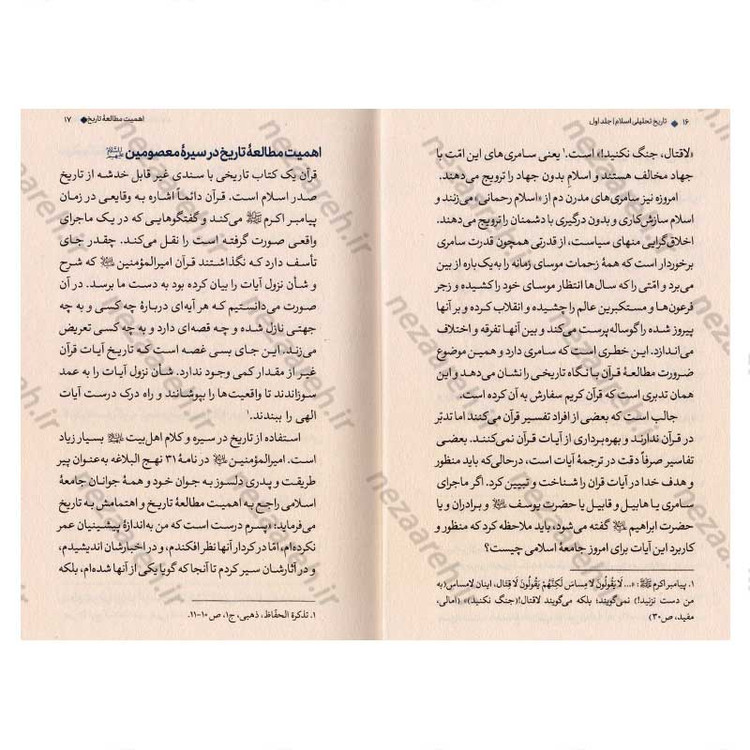 ۱۶ ◆ تاریخ تحلیلی اسلام | جلد اول
«لاقتال، جنگ نکنید!» است.¹ یعنی سامری‌های این امّت با
جهاد مخالف هستند و اسلامِ بدون جهاد را ترویج می‌دهند.
امروزه نیز سامری‌های مدرن دم از «اسلام رحمانی» می‌زنند و
اسلام سازش‌کاری و بدون درگیری با دشمنان را ترویج می‌دهند.
اخلاق‌گرایی منهای سیاست، از قدرتی همچون قدرت سامری
برخوردار است که همهٔ زحمات موسای زمانه را به‌یک‌باره از بین
می‌برد و امّتی را که سال‌ها انتظار موسای خود را کشیده و زجر
فرعون‌ها و مستکبرین عالم را چشیده و انقلاب کرده و بر آنها
پیروز شده را گوساله‌پرست می‌کند و بین آنها تفرقه و اختلاف
می‌اندازد. این خطری است که سامری دارد و همین موضوع
ضرورت مطالعهٔ قرآن با نگاه تاریخی را نشان می‌دهد و این
همان تدبری است که قرآن کریم سفارش به آن کرده است.
جالب است که بعضی از افراد تفسیر قرآن می‌کنند اما تدبّر
در قرآن ندارند و بهره‌برداری از آیات قرآن نمی‌کنند. بعضی
تفاسیر صرفاً دقت در ترجمهٔ آیات است، درحالی‌که باید منظور
و هدف خدا در آیات قران را شناخت و تبیین کرد. اگر ماجرای
سامری یا هابیل و قابیل یا حضرت یوسف ﷺ و برادران و یا
حضرت ابراهیم ﷺ گفته می‌شود، باید ملاحظه کرد که منظور و
کاربرد این آیات برای امروز جامعهٔ اسلامی چیست؟
۱. پیامبر اکرم ﷺ: «... لَا یَقُولُونَ لَا مِسَاسَ لَکِنَّهُمْ یَقُولُونَ لَا قِتَال، اینان لامساس(به
من دست نزنید!) نمی‌گویند؛ بلکه می‌گویند لاقتال!(جنگ نکنید)» (امالی،
مفید، ص۳۰)
اهمیت مطالعهٔ تاریخ ◆ ۱۷
اهمیت مطالعهٔ تاریخ در سیرهٔ معصومین
قرآن یک کتاب تاریخی با سندی غیر قابل خدشه از تاریخ
صدر اسلام است. قرآن دائماً اشاره به وقایعی در زمان
پیامبر اکرم ﷺ می‌کند و گفتگوهایی که در یک ماجرای
واقعی صورت گرفته است را نقل می‌کند. چقدر جای
تأسف دارد که نگذاشتند قرآن امیرالمؤمنین که شرح
و شأن نزول آیات را بیان کرده بود به دست ما برسد. در آن
صورت می‌دانستیم که هر آیه‌ای دربارهٔ چه کسی و به چه
جهتی نازل شده و چه قصه‌ای دارد و به چه کسی تعریض
می‌زند. این جای بسی غصه است که تاریخ آیات قرآن
غیر از مقدار کمی وجود ندارد. شأن نزول آیات را به عمد
سوزاندند تا واقعیت‌ها را بپوشانند و راه درک درست آیات
الهی را ببندند.¹
استفاده از تاریخ در سیره و کلام اهل‌بیت بسیار زیاد
است. امیرالمؤمنین در نامهٔ ۳۱ نهج البلاغه به‌عنوان پیر
طریقت و پدری دلسوز به جوان خود و همهٔ جوانان جامعهٔ
اسلامی راجع به اهمیت مطالعهٔ تاریخ و اهتمامش به تاریخ
می‌فرماید: «پسرم درست است که من به‌اندازهٔ پیشینیان عمر
نکرده‌ام، امّا در کردار آنها نظر افکندم، و در اخبارشان اندیشیدم،
و در آثارشان سیر کردم تا آنجا که گویا یکی از آنها شده‌ام، بلکه
۱. تذکرة الحفّاظ، ذهبی، ج۱، ص ۱۰-۱۱.
nezaareh.ir